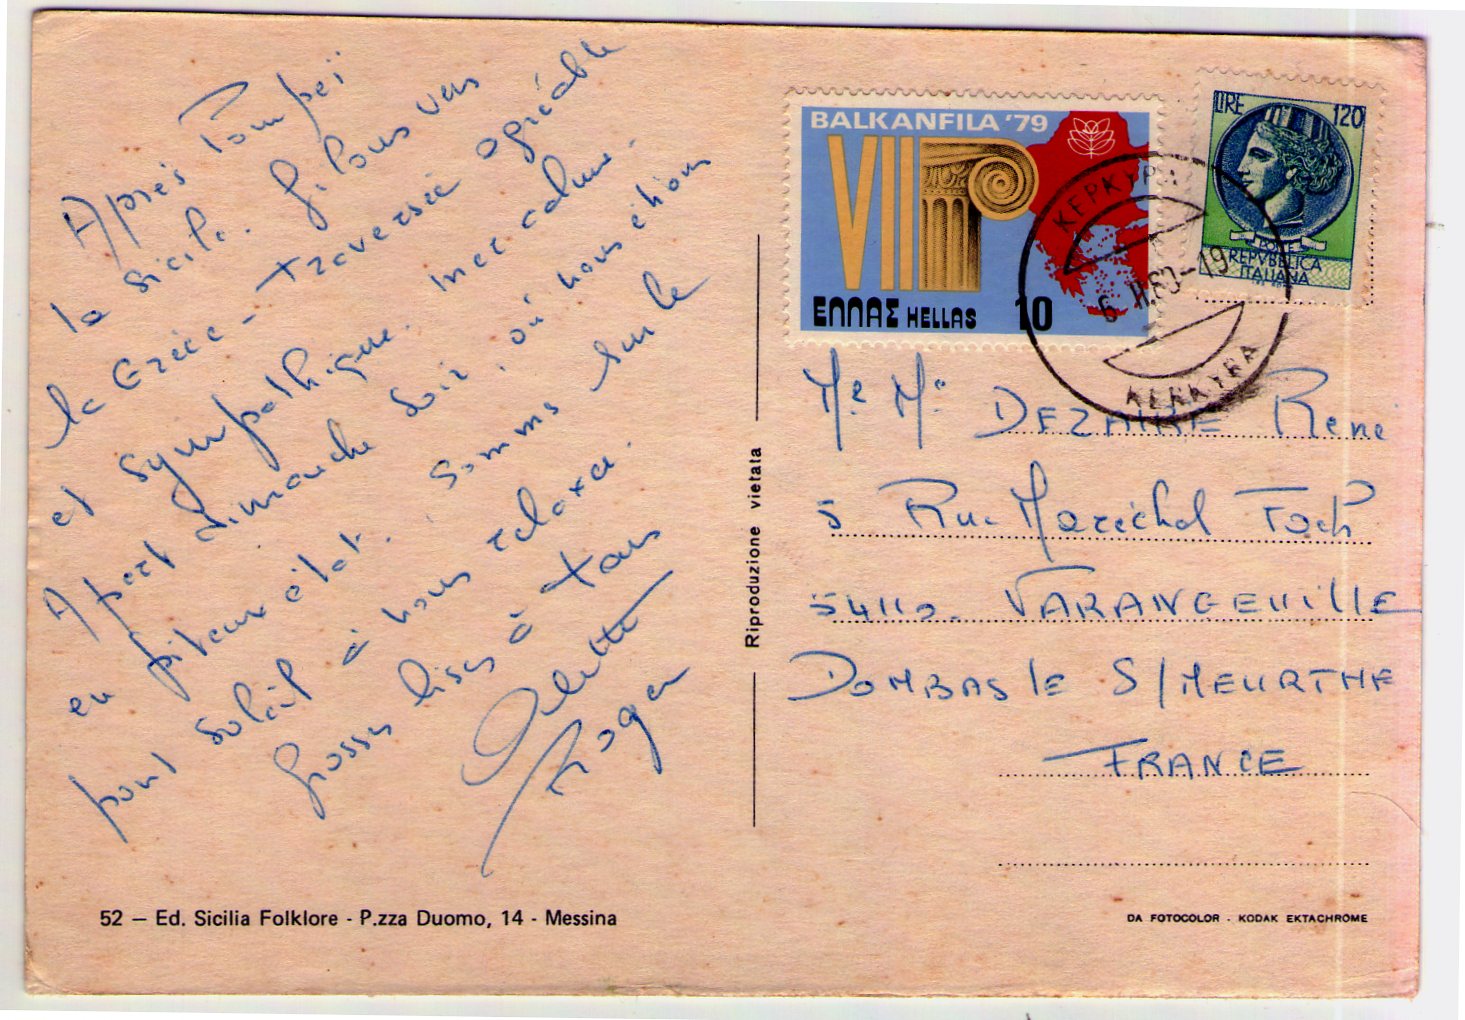 Après Pompei
la Sicile. filons vers
la Grèce - traversée agréable
et sympathique. mer calme.
Apart dimanche soir, où nous étions
en piteux état. Sommes sur le
pont soleil à nous relaxer.
Grosses bises à tous
Roger
52 – Ed. Sicilia Folklore - P.zza Duomo, 14 - Messina
Riproduzione vietata
BALKANFILA '79
VII
ΕΛΛΑΣ HELLAS 10
LIRE 120
POSTE
REPVBBLICA
ITALIANA
ΚΕΡΚΥΡΑ
KERKYRA
Me Mr DEZAIRE René
5 Rue Maréchal Foch
54110. VARANGEVILLE
DOMBASLE S/MEURTHE
FRANCE
DA FOTOCOLOR - KODAK EKTACHROME